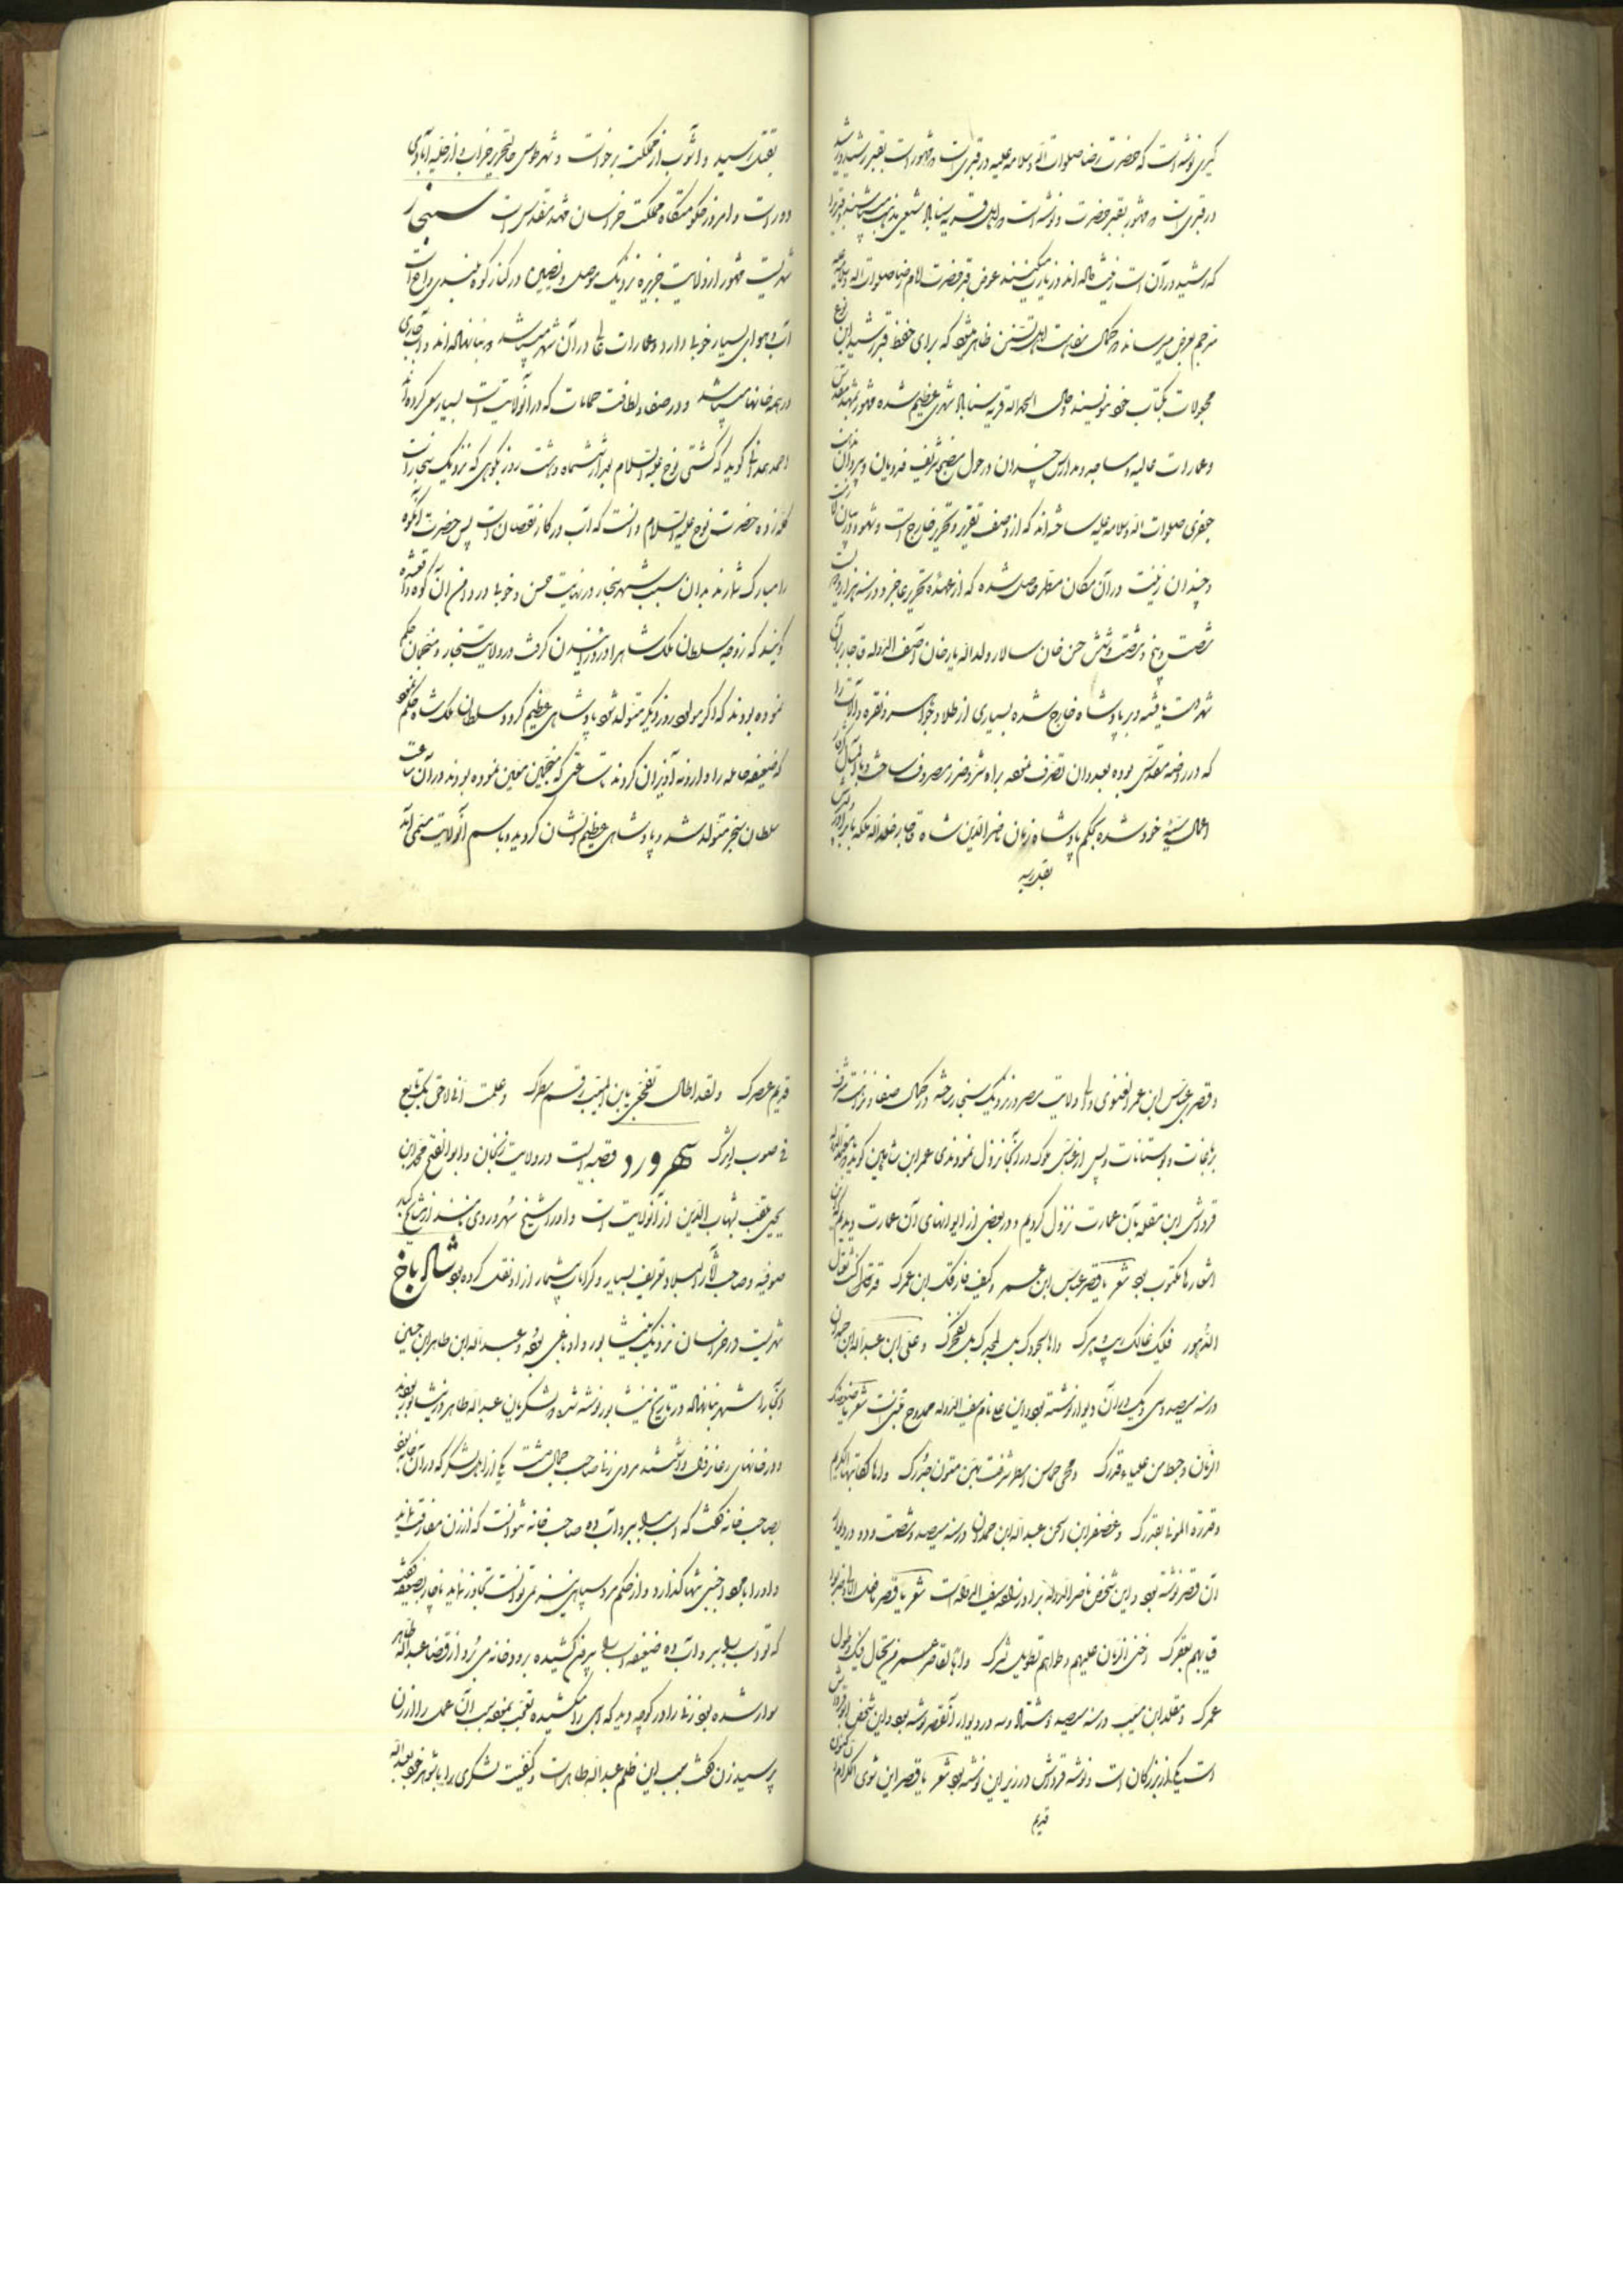 کبری نوشته است که حضرت رضا صلوات الله و سلامه علیه در قبری است و مشهور است بقبر رشید و رشید
در قبری است که مشهور بقبر حضرت و نوشته است که اهل قریه سناباد شیعی مذهب میباشند و قبر را
که رشید در آن است زینت داده‌اند و زیارت میکنند عوض قبر حضرت امام رضا صلوات الله و سلامه علیه
مترجم عرض میرساند که کمال سفاهت اهل تسنن ظاهر میشود که برای حفظ قبر رشید این نوع
مجعولات بکتاب خود مینویسند و حال الحمد الله قریه سناباد شهری عظیم شده مشهور بمشهد مقدس
و عمارات عالیه و مساجد و مدارس چندان در حول مضجع شریف
جعفری صلوات الله و سلامه علیه ساخته‌اند که از وصف تقریر و تحریر خارج است
و چندان زینت در آن مکان مطهر حاصل شده که از عهده تحریر عاجز و در سنه هزار و دویست
شصت و پنج و شصت و شش حسن خان سالار ولد الله یار خان آصف الدوله قاجار بدان
شهر دست یافته و بر پادشاه خارج شده بسیاری از طلا و جواهر و نقره و آلات را
که در روضه مقدس بوده بعدوان تصرف نموده براه شر و ضرر مصروف ساخت
اعمال سیئه خود شده بحکم پادشاه زمان ناصر الدین شاه قاجار خلد الله ملکه با برادر
بقتل رسید
بقتل رسید و آشوب از مملکت برخواست و شهر طوس حال تحریر خراب و از حلیه آبادی
دور است و امروز حکومتگاه مملکت خراسان مشهد مقدس است سنجار
شهریست مشهور از ولایت جزیره نزدیک موصل و نصیبین در کنار کوه بلندی واقع است
آب و هوای بسیار خوب دارد و عمارات عالی در آن شهر میباشد
در همه خانها میباشد و در صفا و لطافت حمامات که در آنولایت است بسیار سعی کرده‌اند
احمد همدانی گوید که کشتی نوح علیه السلام بعد از ششماه و هشت روز بکوهی که نزدیک سنجار است
تکه زده حضرت نوح علیه السلام دانست که آب در کار نقصان است پس حضرت آنکوه
را مبارک شمارند بدان سبب شهر سنجار در نهایت حسن و خوبی در دامن آن کوه واقع شده
گویند که زوجه سلطان ملک شاه را درد زائیدن گرفت در ولایت سنجار و منجمان حکم
نموده بودند که اگر مولود روز دیگر متولد شود پادشاهی عظیم گردد سلطان ملک شاه حکم نمود
که ضعیفه حامله را وارونه آویزان کردند تا ساعتی که منجمین معین نموده بودند در آن ساعت
سلطان سنجر متولد شد و پادشاهی عظیم الشان گردید و باسم آنولایت مسمی آمد
و قصر عباس ابن عمر الغنوی والی ولایت مصر در نزدیک سنجار ساخته در کمال صفا و نزاهت
باغات و بوستانات و پس از عباس ملوک در آنجا نزول نمودندی عمران ابن شاهین گوید
قرواش ابن مقلد بآن عمارت نزول کردیم و در بعضی از ایوانهای آن عمارت دیدیم که
اشعارها مکتوب بود شعر یا قصر عباس ابن عمر و کیف فارقک ابن عمرک قد کنت تغتال
الدهور فکیف غالک ریب دهرک واها لمجدک بل لجودک بل لفخرک و علی ابن عبد الله ابن حمدان
در سنه سیصد و سی و یک در آن دیوار نوشته بود و این علی نام سیف الدوله ممدوح متنبی است
الزمان و حط من علیاء قدرک و محا محاسن اسطر شرفت بهن متون جدرک واها لکاتبها الکریم
و قدره الموفی بقدرک و غضنفر ابن الحسن عبد الله ابن حمدان در سنه سیصد و شصت و دو در دیوار
آن قصر نوشته بود و این شخص ناصر الدوله برادرزاده سیف الدوله است شعر یا قصر ما فعل الاولی
قبابهم بقعرک اخنی الزمان علیهم وطواهم تطویل نشرک واها لقاصر عمر من یختال فیک و طول
عمرک و مقلد ابن مسیب در سنه سیصد و هشتاد و سه در دیوار آنقصر نوشته بود و این شخص ابو قرواش
است یکی از بزرگان است و نوشته قرواش در زیر این نوشته بود شعر یا قصر این ثوی الکرام
قدیم
قدیم عصرک ولقد اطال تفجعی یا ابن المسیب رقم سطرک و علمت انی لاحق بک تابع
فی صوب اثرک سهرورد قصبه‌ایست در ولایت زنجان و ابو الفتح محمد ابن
یحیی ملقب بشهاب الدین از آنولایت است و او را شیخ سهروردی مینامند از مشایخ کبار
صوفیه و صاحب آثار البلاد تعریف بسیار و کرامات بیشمار از او نقل کرده بود شادیاخ
شهریست در خراسان نزدیک نیشابور و او باغی بود و عبد الله ابن طاهر ابن حسین
آنجا را شهر بنا نهاد در تاریخ نیشابور نوشته شد که لشکریان عبد الله طاهر در نیشابور بودند
و در خانهای رعایا نزول داشتند مردی زنی صاحب جمال داشت یکی از اهل لشکر که در آن خانه بود
بصاحب خانه گفت که اسب مرا ببر و آب ده صاحب خانه نتوانست که از زن مفارقت نماید
و او را با مرد اجنبی تنها گذارد و از حکم مرد سپاهی نیز نمیتوانست تجاوز نماید ناچار بضعیفه گفت
که تو اسب را ببر و آب ده ضعیفه اسب را بیرون کشیده برودخانه می‌برد از قضا عبد الله طاهر
سوار شده بود زن را در کوچه دید که اسبی را میکشیده تعجب نمود سبب آن عمل را از زن
پرسید زن گفت سبب این ظلم عبد الله طاهر است و کیفیت لشکری را با شوهر خود بعبد الله